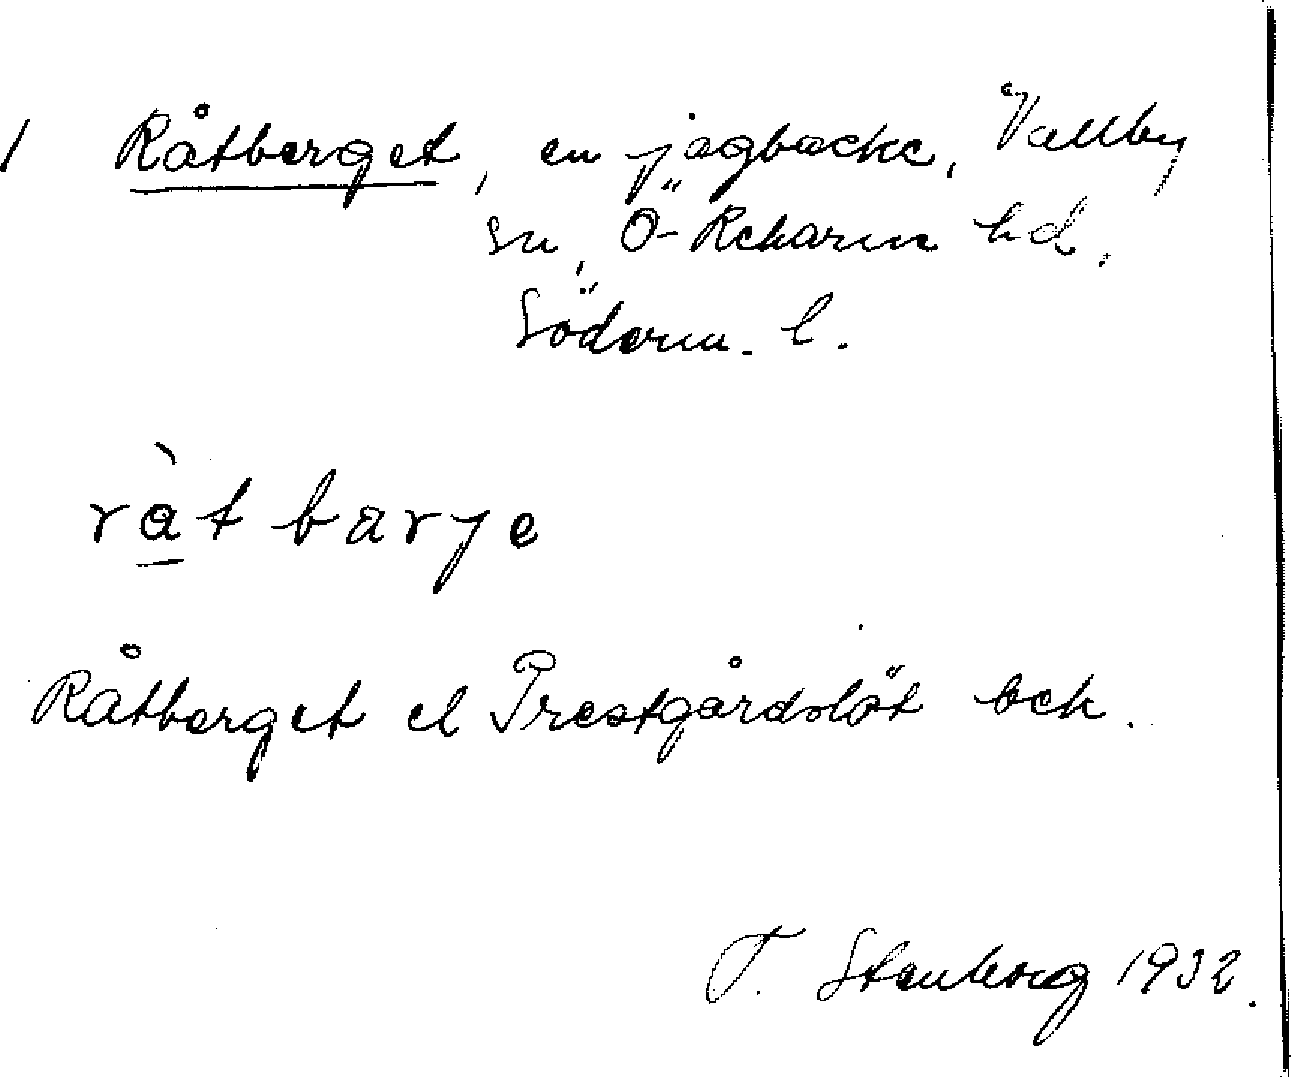 1 Råtberget, en jagbacke, Vallby
sn, Ö-Rekarne hd.
Söderm. l.
rà̱tbarje
Råtberget el Prestgårdslöt bck.
T. Stenberg 1932.